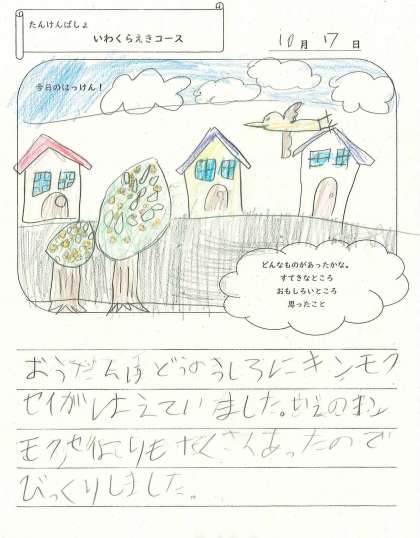 たんけんばしょ
いわくらえきコース
10月17日
今日のはっけん！
どんなものがあったかな。
すてきなところ
おもしろいところ
思ったこと
おうだんほどうのうしろにキンモク
セイがはえていました。いえのキン
モクセイよりもたくさんあったので
びっくりしました。